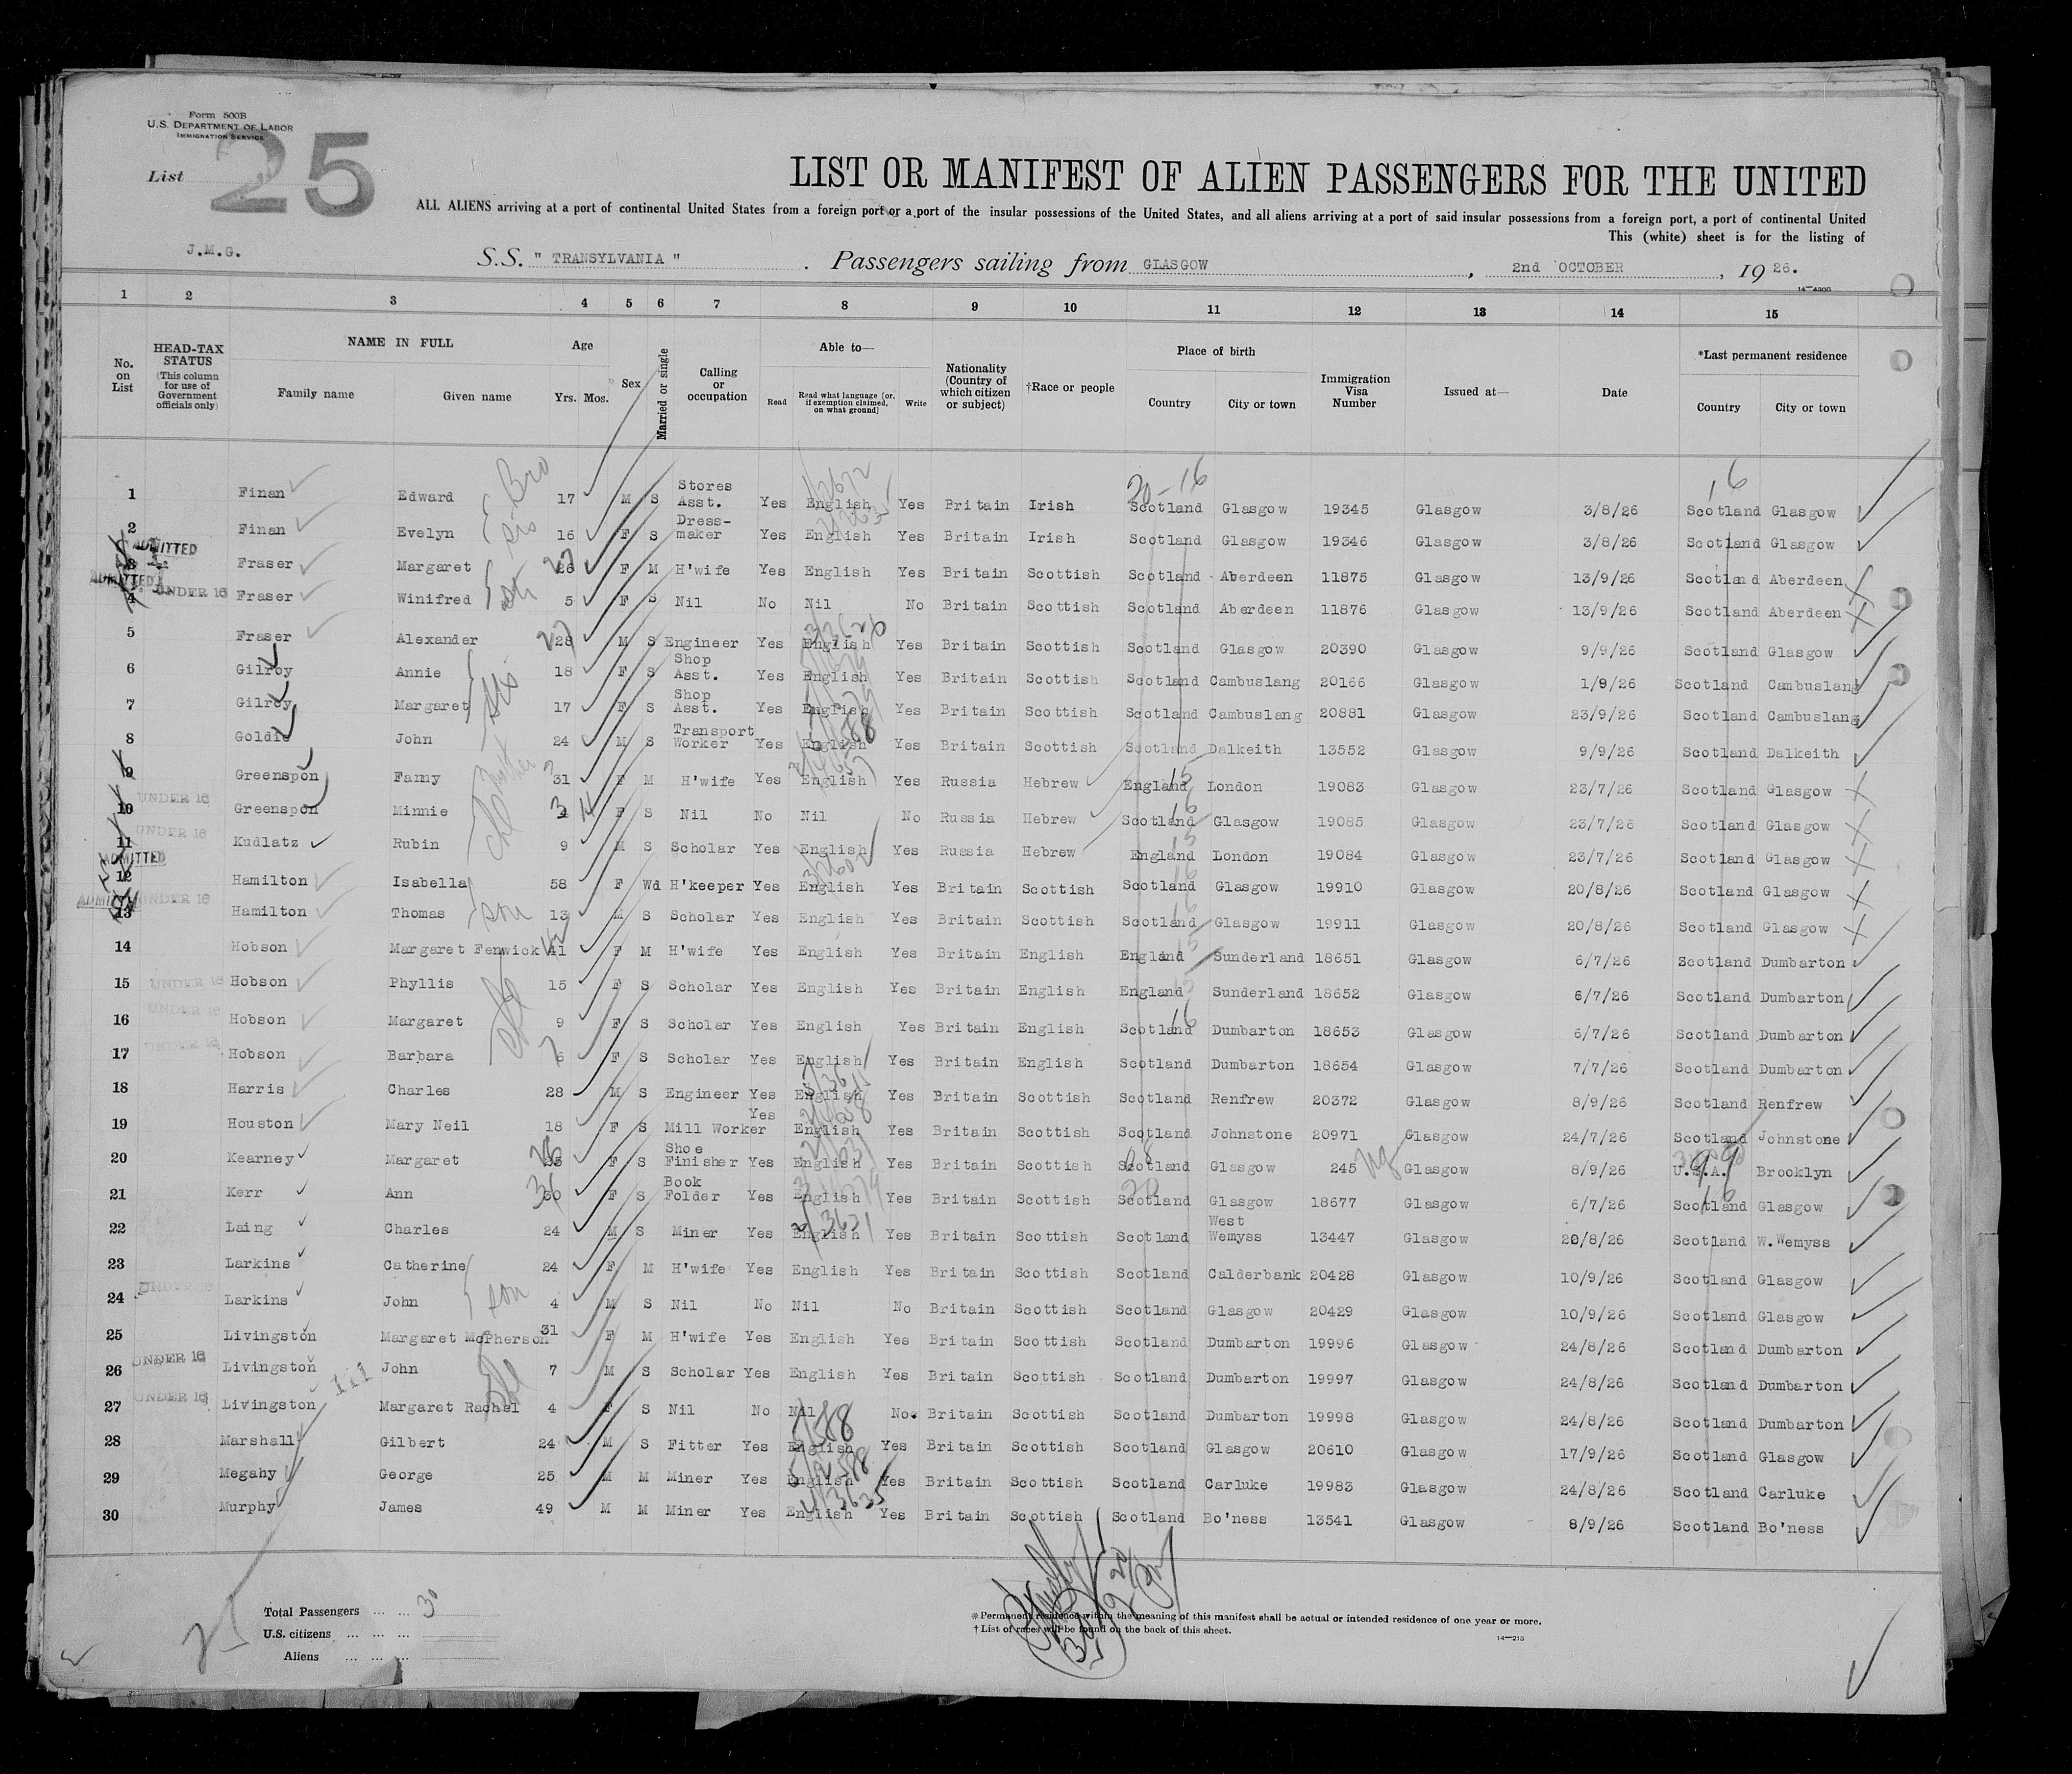 Form 500B
U.S. DEPARTMENT OF LABOR
IMMIGRATION SERVICE
List 25
LIST OR MANIFEST OF ALIEN PASSENGERS FOR THE UNITED
ALL ALIENS arriving at a port of continental United States from a foreign port or a port of the insular possessions of the United States, and all aliens arriving at a port of said insular possessions from a foreign port, a port of continental United
This (white) sheet is for the listing of
J.M.G. S.S. " TRANSYLVANIA " . Passengers sailing from GLASGOW , 2nd OCTOBER , 19 26.
14—4306
1 2 3 4 5 6 7 8 9 10 11 12 13 14 15
No. on List HEAD-TAX STATUS (This column for use of Government officials only) NAME IN FULL Family name Given name Age Yrs. Mos. Sex Married or single Calling or occupation Able to— Read Read what language [or, if exemption claimed, on what ground] Write Nationality (Country of which citizen or subject) †Race or people Place of birth Country City or town Immigration Visa Number Issued at— Date *Last permanent residence Country City or town
1 Finan Edward Bro 17 M S Stores Asst. Yes English Yes Britain Irish Scotland Glasgow 19345 Glasgow 3/8/26 Scotland Glasgow
2 Finan Evelyn Sis 16 F S Dress-maker Yes English Yes Britain Irish Scotland Glasgow 19346 Glasgow 3/8/26 Scotland Glasgow
ADMITTED 3 Fraser Margaret 26 F M H'wife Yes English Yes Britain Scottish Scotland Aberdeen 11875 Glasgow 13/9/26 Scotland Aberdeen
ADMITTED 4 UNDER 16 Fraser Winifred 5 F S Nil No Nil No Britain Scottish Scotland Aberdeen 11876 Glasgow 13/9/26 Scotland Aberdeen
5 Fraser Alexander 28 M S Engineer Yes English Yes Britain Scottish Scotland Glasgow 20390 Glasgow 9/9/26 Scotland Glasgow
6 Gilroy Annie 18 F S Shop Asst. Yes English Yes Britain Scottish Scotland Cambuslang 20166 Glasgow 1/9/26 Scotland Cambuslang
7 Gilroy Margaret Sis 17 F S Shop Asst. Yes English Yes Britain Scottish Scotland Cambuslang 20881 Glasgow 23/9/26 Scotland Cambuslang
8 Goldie John 24 M S Transport Worker Yes English Yes Britain Scottish Scotland Dalkeith 13552 Glasgow 9/9/26 Scotland Dalkeith
9 Greenspon Fanny 31 F M H'wife Yes English Yes Russia Hebrew England London 19083 Glasgow 23/7/26 Scotland Glasgow
10 UNDER 16 Greenspon Minnie 4 F S Nil No Nil No Russia Hebrew Scotland Glasgow 19085 Glasgow 23/7/26 Scotland Glasgow
11 UNDER 16 Kudlatz Rubin 9 M S Scholar Yes English Yes Russia Hebrew England London 19084 Glasgow 23/7/26 Scotland Glasgow
ADMITTED 12 Hamilton Isabella 58 F Wd H'keeper Yes English Yes Britain Scottish Scotland Glasgow 19910 Glasgow 20/8/26 Scotland Glasgow
ADMITTED 13 UNDER 16 Hamilton Thomas son 13 M S Scholar Yes English Yes Britain Scottish Scotland Glasgow 19911 Glasgow 20/8/26 Scotland Glasgow
14 Hobson Margaret Fenwick 41 F M H'wife Yes English Yes Britain English England Sunderland 18651 Glasgow 6/7/26 Scotland Dumbarton
15 UNDER 16 Hobson Phyllis 15 F S Scholar Yes English Yes Britain English England Sunderland 18652 Glasgow 6/7/26 Scotland Dumbarton
16 UNDER 16 Hobson Margaret 9 F S Scholar Yes English Yes Britain English Scotland Dumbarton 18653 Glasgow 6/7/26 Scotland Dumbarton
17 UNDER 16 Hobson Barbara 6 F S Scholar Yes English Yes Britain English Scotland Dumbarton 18654 Glasgow 7/7/26 Scotland Dumbarton
18 Harris Charles 28 M S Engineer Yes English Yes Britain Scottish Scotland Renfrew 20372 Glasgow 8/9/26 Scotland Renfrew
19 Houston Mary Neil 18 F S Mill Worker Yes English Yes Britain Scottish Scotland Johnstone 20971 Glasgow 24/7/26 Scotland Johnstone
20 Kearney Margaret 26 F S Shoe Finisher Yes English Yes Britain Scottish Scotland Glasgow 245 Glasgow 8/9/26 U.S.A. Brooklyn
21 Kerr Ann 30 F S Book Folder Yes English Yes Britain Scottish Scotland Glasgow 18677 Glasgow 6/7/26 Scotland Glasgow
22 Laing Charles 24 M S Miner Yes English Yes Britain Scottish Scotland West Wemyss 13447 Glasgow 20/8/26 Scotland W.Wemyss
23 Larkins Catherine 24 F M H'wife Yes English Yes Britain Scottish Scotland Calderbank 20428 Glasgow 10/9/26 Scotland Glasgow
24 UNDER 16 Larkins John son 4 M S Nil No Nil No Britain Scottish Scotland Glasgow 20429 Glasgow 10/9/26 Scotland Glasgow
25 Livingston Margaret McPherson 31 F M H'wife Yes English Yes Britain Scottish Scotland Dumbarton 19996 Glasgow 24/8/26 Scotland Dumbarton
26 UNDER 16 Livingston John 7 M S Scholar Yes English Yes Britain Scottish Scotland Dumbarton 19997 Glasgow 24/8/26 Scotland Dumbarton
27 UNDER 16 Livingston Margaret Rachel 4 F S Nil No Nil No. Britain Scottish Scotland Dumbarton 19998 Glasgow 24/8/26 Scotland Dumbarton
28 Marshall Gilbert 24 M S Fitter Yes English Yes Britain Scottish Scotland Glasgow 20610 Glasgow 17/9/26 Scotland Glasgow
29 Megahy George 25 M M Miner Yes English Yes Britain Scottish Scotland Carluke 19983 Glasgow 24/8/26 Scotland Carluke
30 Murphy James 49 M M Miner Yes English Yes Britain Scottish Scotland Bo'ness 13541 Glasgow 8/9/26 Scotland Bo'ness
Total Passengers ... ... 30
U.S. citizens ... ... ...
Aliens ... ... ...
*Permanent residence within the meaning of this manifest shall be actual or intended residence of one year or more.
†List of races will be found on the back of this sheet.
14—213